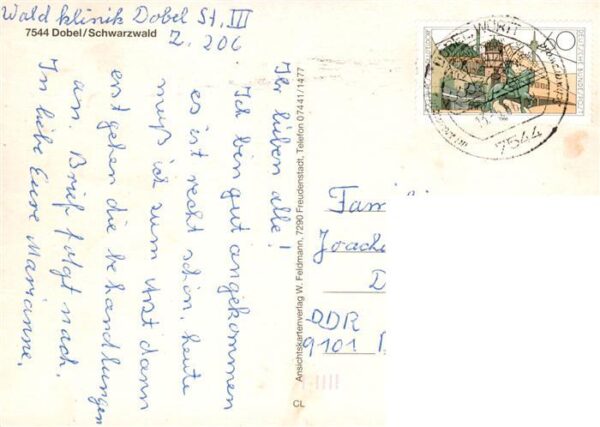 Waldklinik Dobel St. III
Z. 206
7544 Dobel/Schwarzwald
Ihr lieben alle!
Ich bin gut angekommen
es ist recht schön, heute
muß ich zum Arzt dann
erst gehen die behandlungen
an. Brief folgt nach.
In liebe Eure Marianne.
Ansichtskartenverlag W. Feldmann, 7290 Freudenstadt, Telefon 07441/1477
CL
60
7544
Fam
Joache
D
DDR
9101